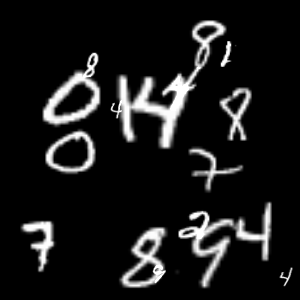 8
8 1
0 4 1 4 4 8
0
7
7
8 9 2 9 4
4